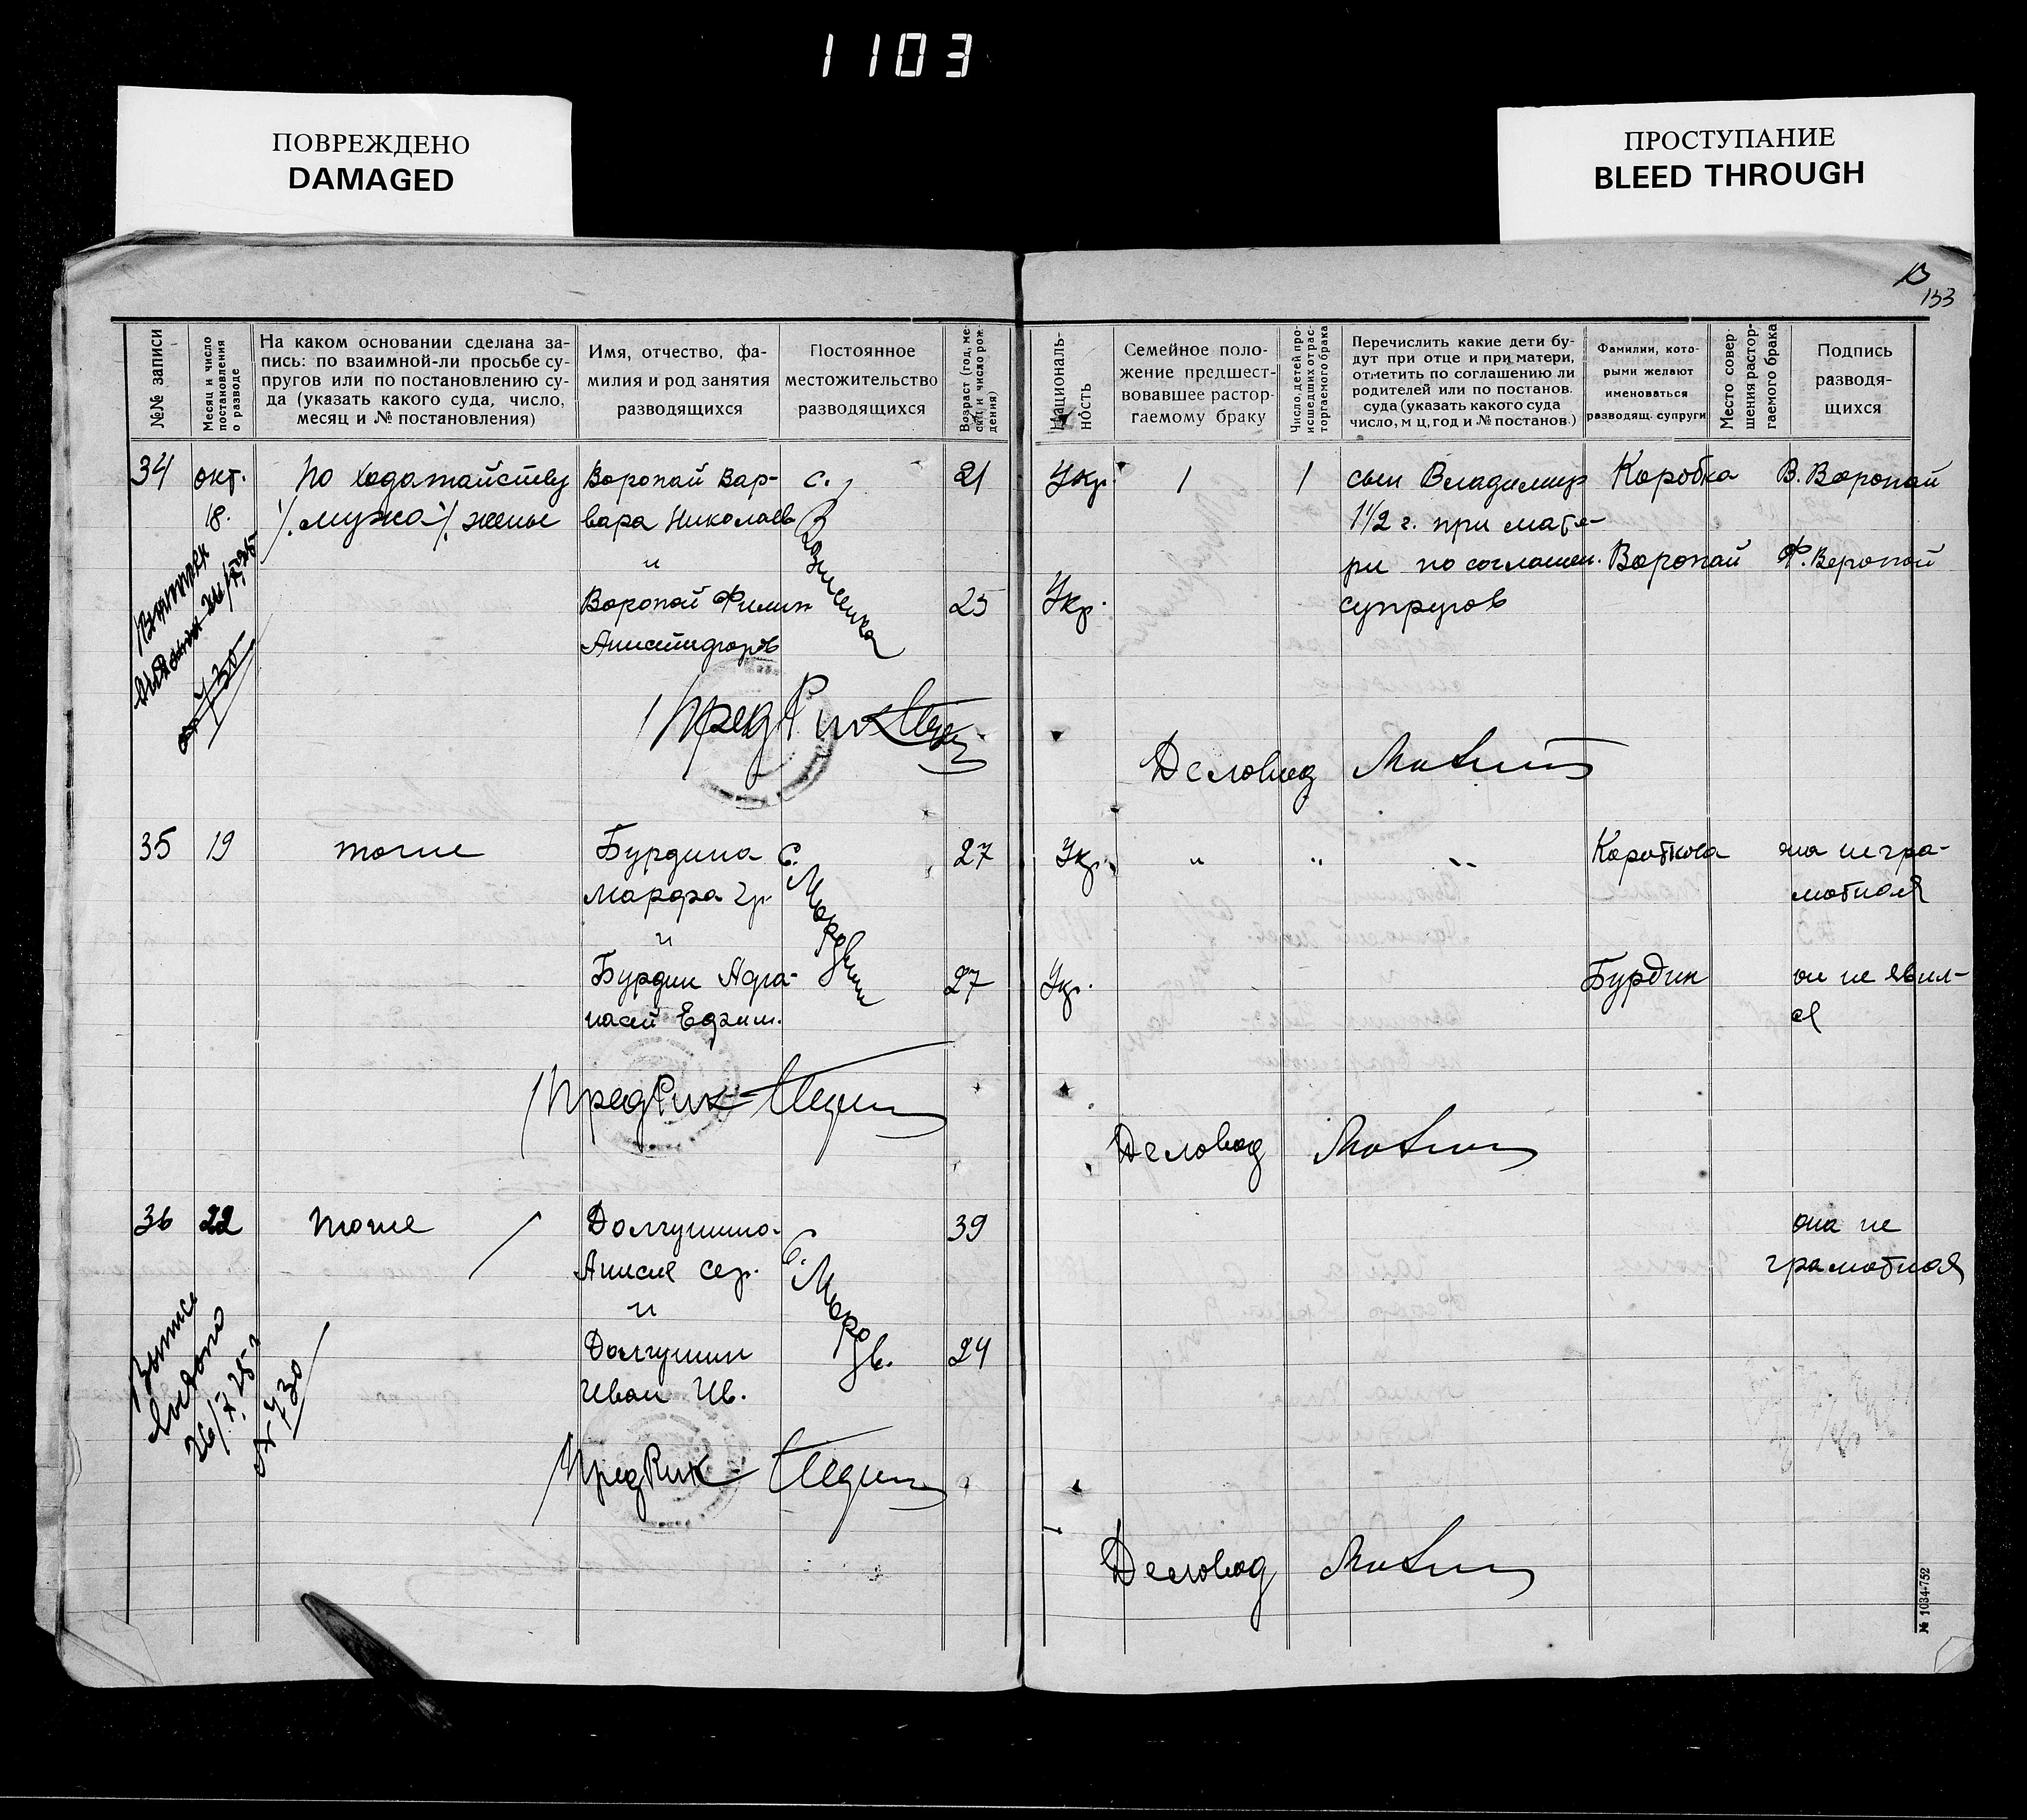 1103
ПОВРЕЖДЕНО
DAMAGED
ПРОСТУПАНИЕ
BLEED THROUGH
133
№№ записи
Месяц и число
постановления
о разводе
На каком основании сделана за-
пись: по взаимной-ли просьбе су-
пругов или по постановлению су-
да (указать какого суда, число,
месяц и № постановления)
Имя, отчество, фа-
милия и род занятия
разводящихся
Постоянное
местожительство
разводящихся
Возраст (год, ме-
сяц и число рож
дения)
Националь-
ность
Семейное поло-
жение предшест-
вовавшее растор-
гаемого браку
Число, детей про-
исшедших от рас-
торгаемого брака
Перечислить какие дети бу-
дут при отце и при матери,
отметить по соглашению ли
родителей или по постанов.
суда (указать какого суда
число, м ц, год и № постанов.)
Фамилии, кото-
рыми желают
именоваться
разводящ. супруги
Место совер
шения растор-
гаемого брака
Подпись
разводя-
щихся
34
окт.
18.
По ходатайству
мужа /. жены
Воропай Вар-
вара Николаев
и
Воропай Филип
с.
21
25
Укр.
Укр.
1
1
сын Владимир
1 1/2 г. при мате-
ри по соглашен.
супругов
Коробка
Воропай
В. Воропай
Ф. Веропай
26/7 25
№ 730
ПредРик
Деловод
35
19
тоже
Бурдина
Марфа Гр.
и
Бурдин Афа-
насий
с.
27
27
Укр.
Укр.
"
"
"
Короткова
Бурдин
она негра-
мотная
он не явил-
ся
ПредРик
Деловод
36
22
тоже
Долгушина
Анисия Сер.
и
Долгушин
Иван Ив.
с.
Морозв.
39
24
она не
грамотная
Выпись
26/7 25 г
№ 730
ПредРик
Деловод
№ 1034-752